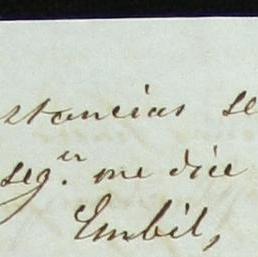 stancias se
seg.er me dice
Embil,